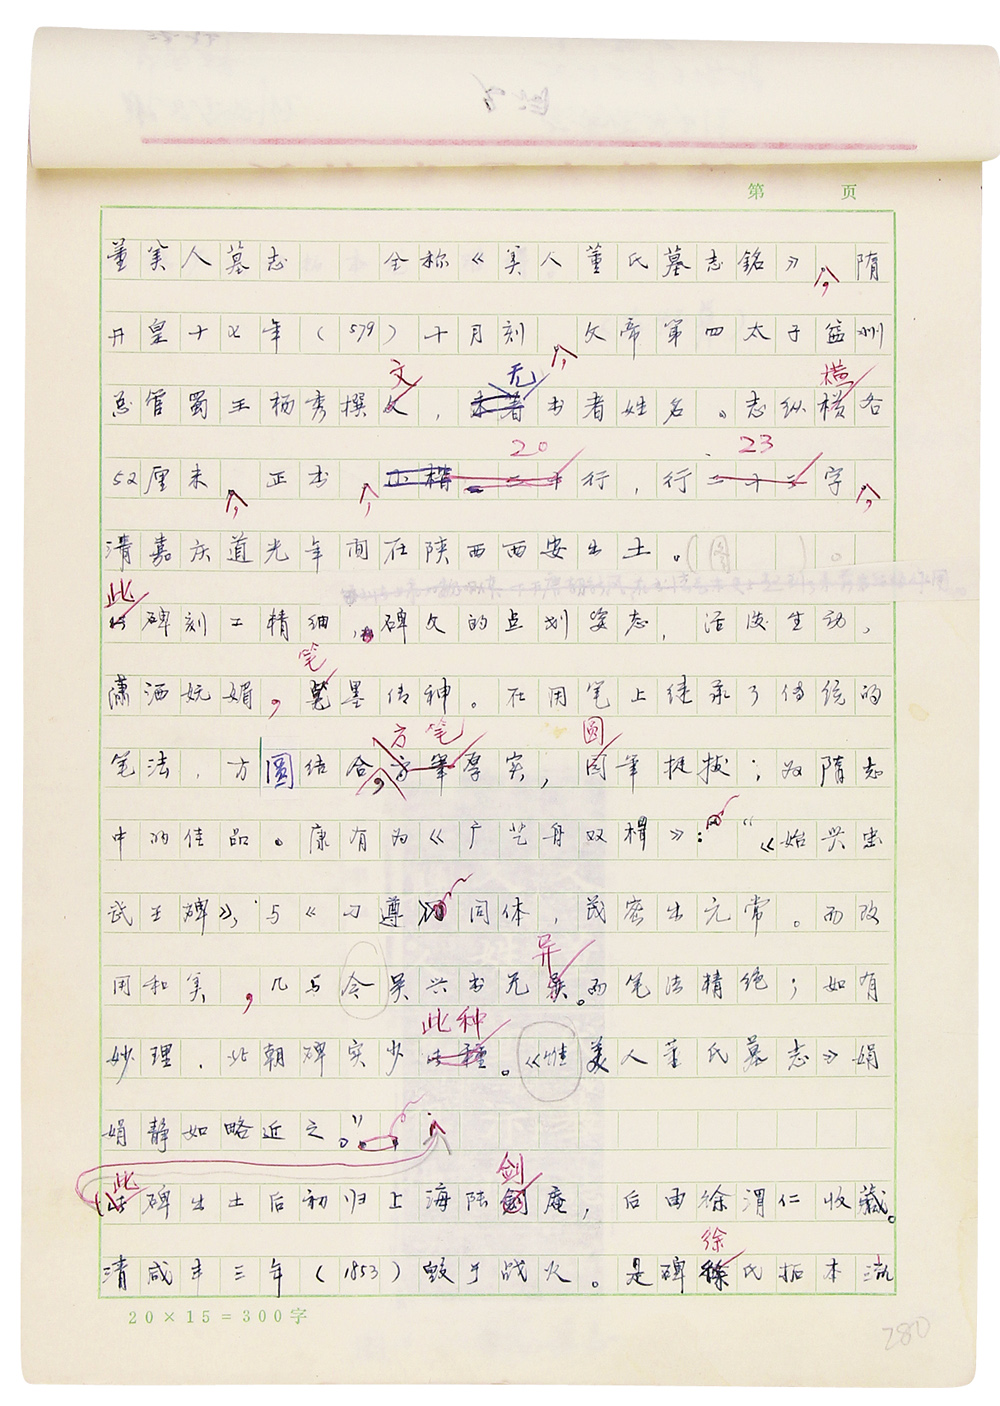 第 页
董美人墓志 全称《美人董氏墓志銘》，隋
开皇十七年（579）十月刻，文帝第四太子益州
总管蜀王杨秀撰文，无书者姓名。志纵横各
52厘米，正书，20行，行23字，
清嘉庆道光年间在陕西西安出土。（圖）。
此碑刻工精细，碑文的点划姿态，活泼生动，
潇洒妩媚，笔墨传神。在用笔上继承了传统的
笔法，方圓结合，方笔厚实，圆筆挺拔；为隋志
中的佳品。康有为《广艺舟双楫》：“《始兴忠
武王碑》，与《刁遵》同体，茂密出元常。而改
用和美，几与令吴兴书无异。而笔法精绝；如有
妙理．北朝碑实少此种。《惟美人董氏墓志》娟
娟静如略近之。”
此碑出土后初归上海陆剑庵，后由徐渭仁收藏。
清咸丰三年（1853）毁于战火。是碑徐氏拓本流
20×15=300字
280